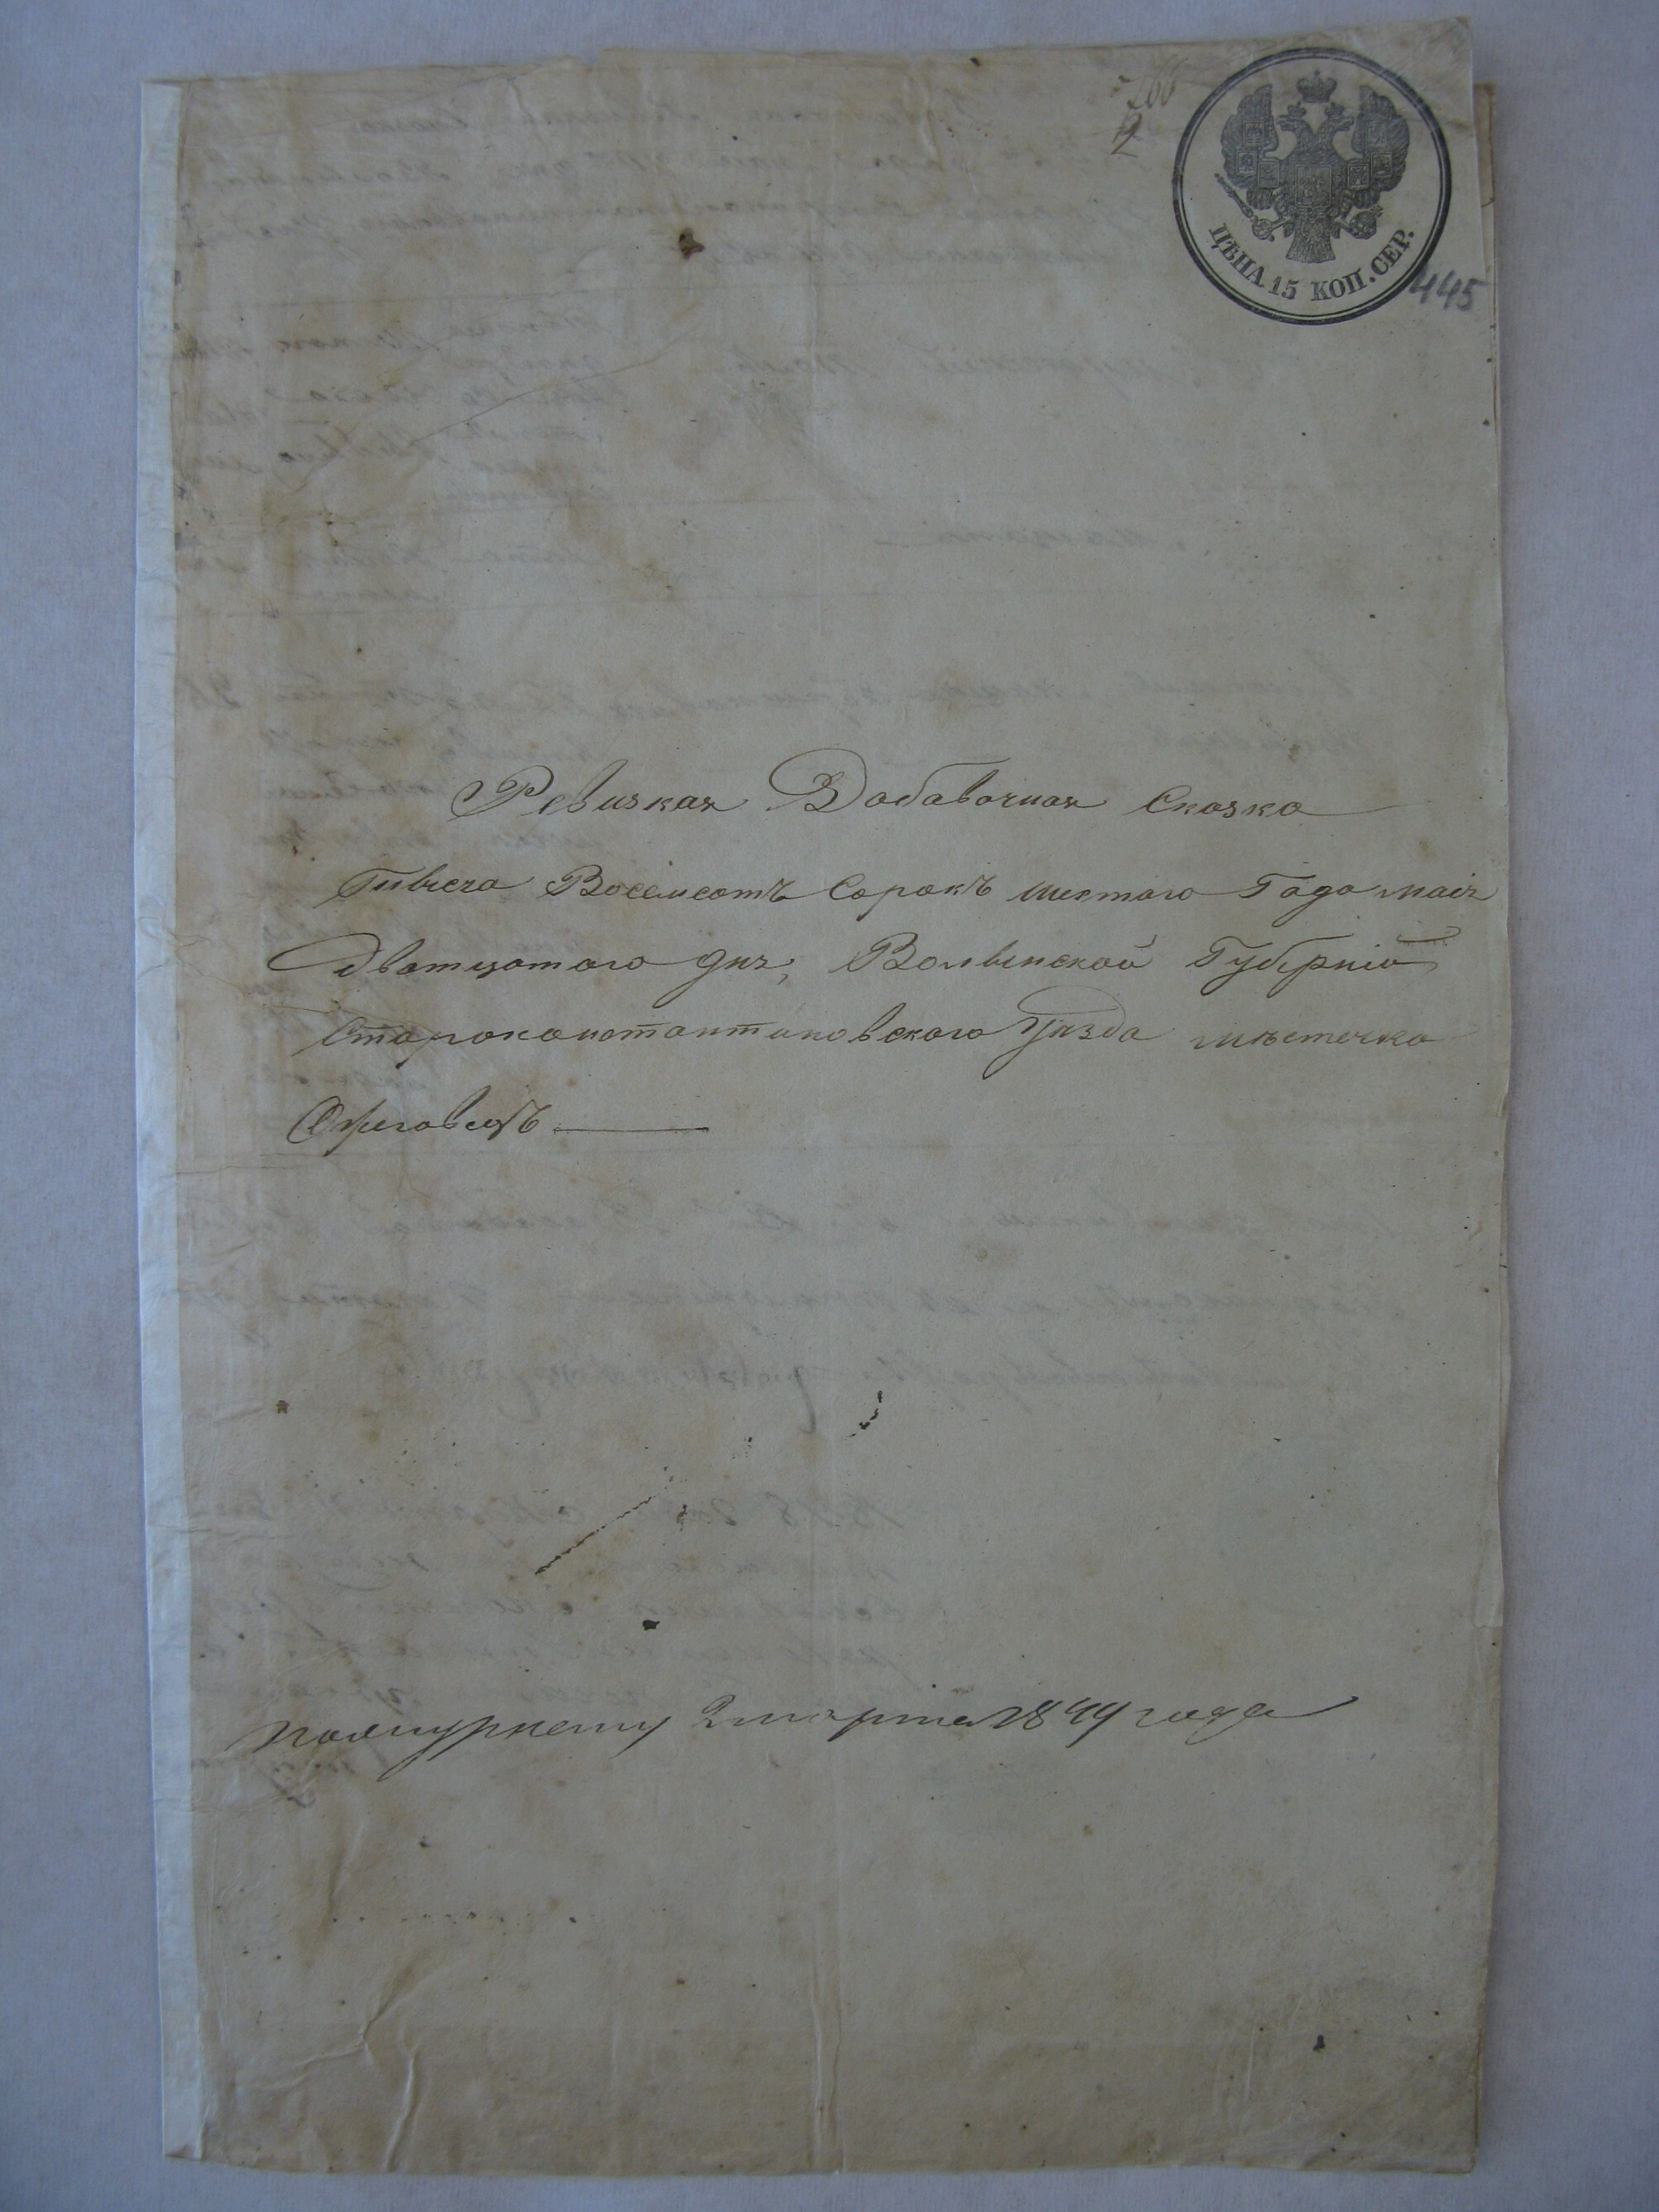 266
2
ЦѢНА 15 КОП. СЕР.
445
Ревизкая Добавочная Сказка
Тысеча Восемсотъ Сорокъ шестого Года маія
дватцатого дня, Волынской Губерніи
Староконстантиновского Уѣзда мѣстечка
Ожеговецъ
2 марта 1849 года